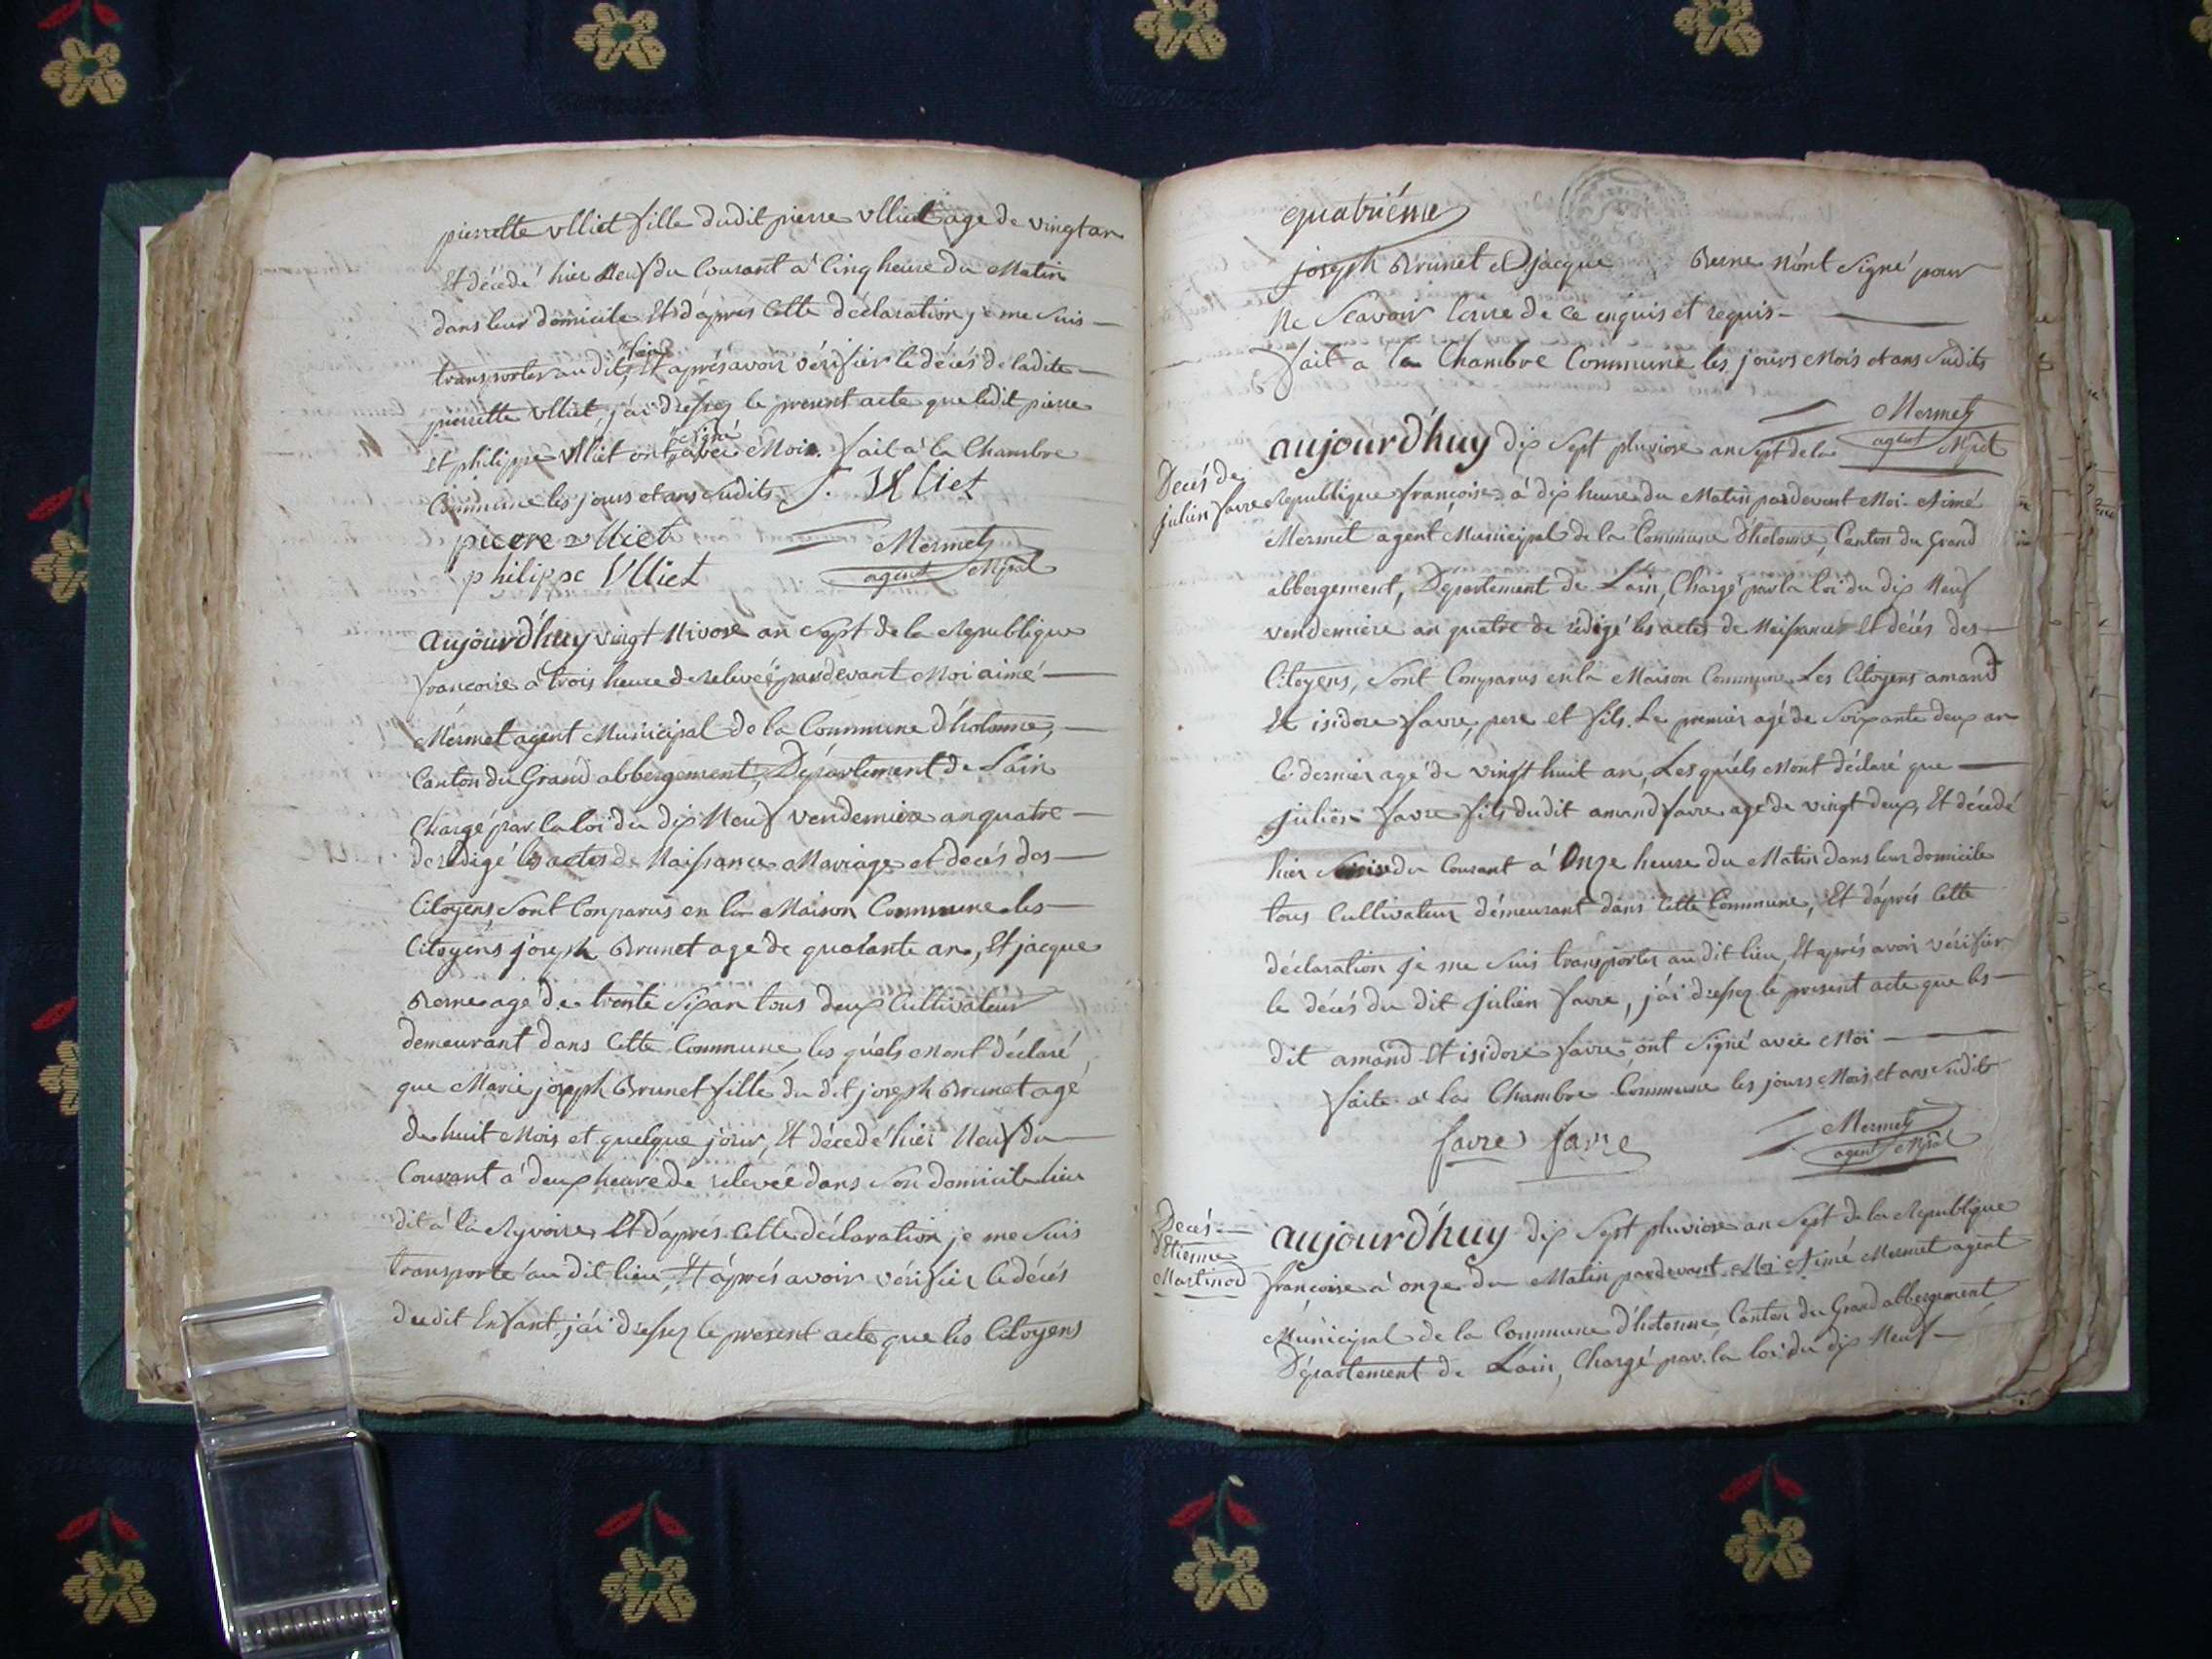 pierrette ulliet fille dudit pierre ulliet age de vingt an
Et décedé hier Neuf du Courant a Cinq heure du Matin
dans leur domicile Et d'aprés Cette déclaration je me suis
transporter au dit lieu Et aprés avoir vérifier le décés de ladite
pierrette ulliet, j'ai dressez le present acte que ledit pierre
Et philippe ulliet ont signé avec Moi. fait à la Chambre
Commune les jours et ans sudits J. Ulliet
pierre ulliet
philippe Ulliet
Mermet
agent Mpal
aujourd'huy vingt Nivose an Sept de la Republique
francoise a trois heure de relevée pardevant Moi aimé
Mermet agent Municipal de la Commune d'hotonne,
Canton du Grand abbergement, Département de Lain
Chargé par la loi du dix Neuf vendemiere an quatre
de redigé les actes de Naissance Mariage et decés des
Citoyens, sont Conparus en la Maison Commune les
Citoyens joseph Brunet age de quarante an, Et jacque
Berne age de trente six an tous deux Cultivateur
demeurant dans Cette Commune, les quéls Mont déclaré
que Marie joseph Brunet fille du dit joseph Brunet agé
de huit Mois et quelque jour, Et décedé hier Neuf du
Courant a deux heure de relevée dans son domicile lieu
dit à la Ryvoire Et d'aprés Cette déclaration je me suis
transporté au dit lieu, Et aprés avoir vérifier le décés
dudit Enfant, j'ai dressez le present acte que les Citoyens
quatriéme
joseph Brunet Et jacque Berne N'ont signé pour
Ne Scavoir lerire de Ce enquis et requis
fait a la Chambre Commune les jours Mois et ans sudits
Mermet
agent Mpal
Decés de
julien favre
aujourd'huy dix Sept pluviose an Sept de la
Republique françoise à dix heure du Matin pardevant Moi Aimé
Mermet agent Municipal de la Commune d'hotonne, Canton du Grand
abbergement, Département de Lain, Chargé par la loi du dix Neuf
vendemiere an quatre de rédigé les actes de Naissance Et décés des
Citoyens, sont Conparus en la Maison Commune Les Citoyens amand
Et isidore favre, pere et fils. Le premier agé de soixante deux an
le dernier agé de vingt huit an, Les quéls Mont déclaré que
julien favre fils dudit amand favre age de vingt deux, Et décedé
hier seise du Courant à Onze heure du Matin dans leur domicile
tous Cultivateur démeurant dans Cette Commune, Et d'aprés Cette
déclaration je me suis transporter au dit lieu, Et aprés avoir vérifier
le décés du dit julien favre, j'ai dressez le present acte que les
dit amand Et isidore favre ont signé avec Moi
faite à la Chambre Commune les jours Mois et ans sudits
favre favre
Mermet
agent Mpal
Decés
Etienne
Martinod
aujourd'huy dix Sept pluviose an Sept de la Republique
françoise à onze du Matin pardevant Moi Aimé Mermet agent
Municipal de la Commune d'hotonne, Canton du Grand abbergement,
Département de Lain, Chargé par la loi du dix Neuf